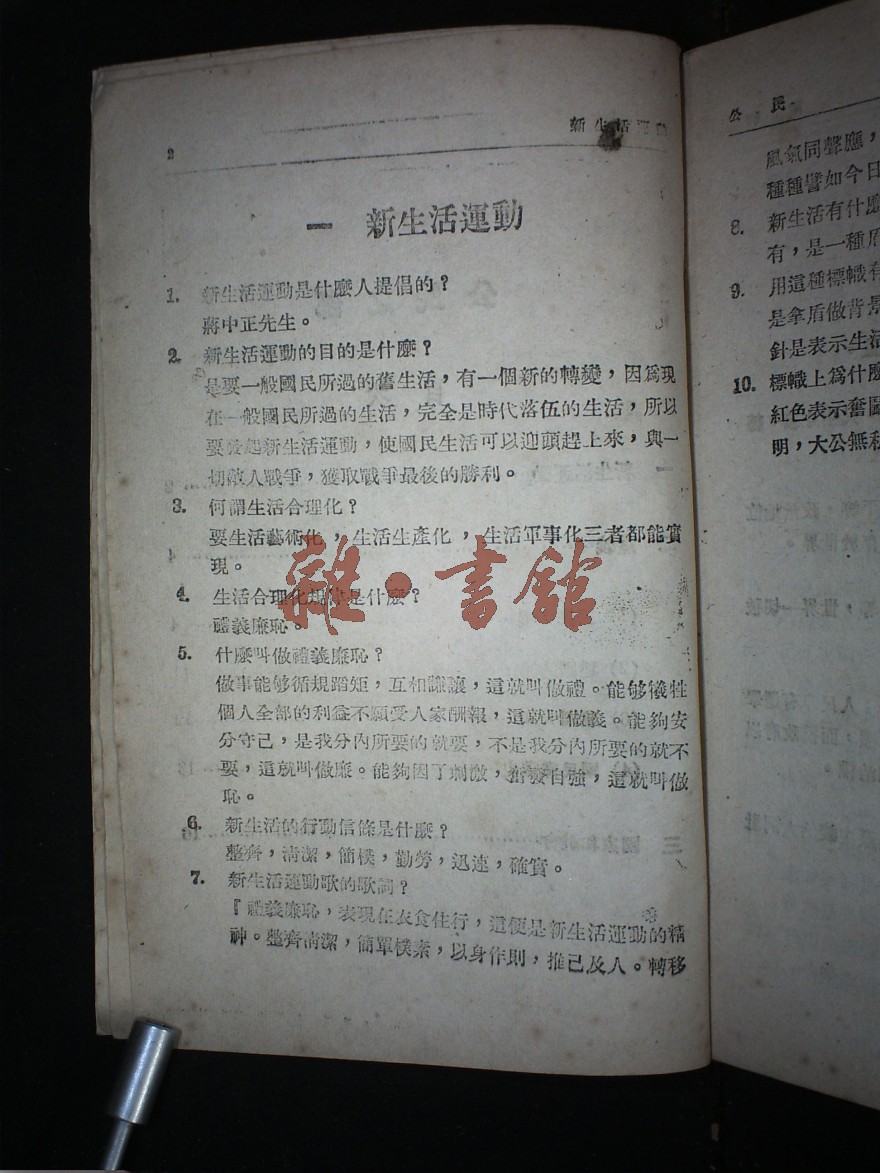 2
新生活運
一 新生活運動
1. 新生活運動是什麼人提倡的？
蔣中正先生。
2. 新生活運動的目的是什麼？
是要一般國民所過的舊生活，有一個新的轉變，因爲現
在一般國民所過的生活，完全是時代落伍的生活，所以
要發起新生活運動，使國民生活可以迎頭趕上來，與一
切敵人戰爭，獲取戰爭最後的勝利。
3. 何謂生活合理化？
要生活藝術化，生活生產化，生活軍事化三者都能實
現。
4. 生活合理化規律是什麼？
禮義廉恥。
5. 什麼叫做禮義廉恥？
做事能够循規蹈矩，互相謙讓，這就叫做禮。能够犧牲
個人全部的利益不願受人家酬報，這就叫做義。能夠安
分守己，是我分內所要的就要，不是我分內所要的就不
要，這就叫做廉。能夠因了刺激，奮發自強，這就叫做
恥。
6. 新生活的行動信條是什麼？
整齊，清潔，簡樸，勤勞，迅速，確實。
7. 新生活運動歌的歌詞？
『禮義廉恥，表現在衣食住行，這便是新生活運動的精
神。整齊清潔，簡單樸素，以身作則，推己及人。轉移
雜·書館
公 民
風氣同聲應，
種種譬如今日
8. 新生活有什麼
有，是一種盾
9. 用這種標幟有
是拿盾做背景
針是表示生活
10. 標幟上爲什麼
紅色表示奮鬭
明，大公無私